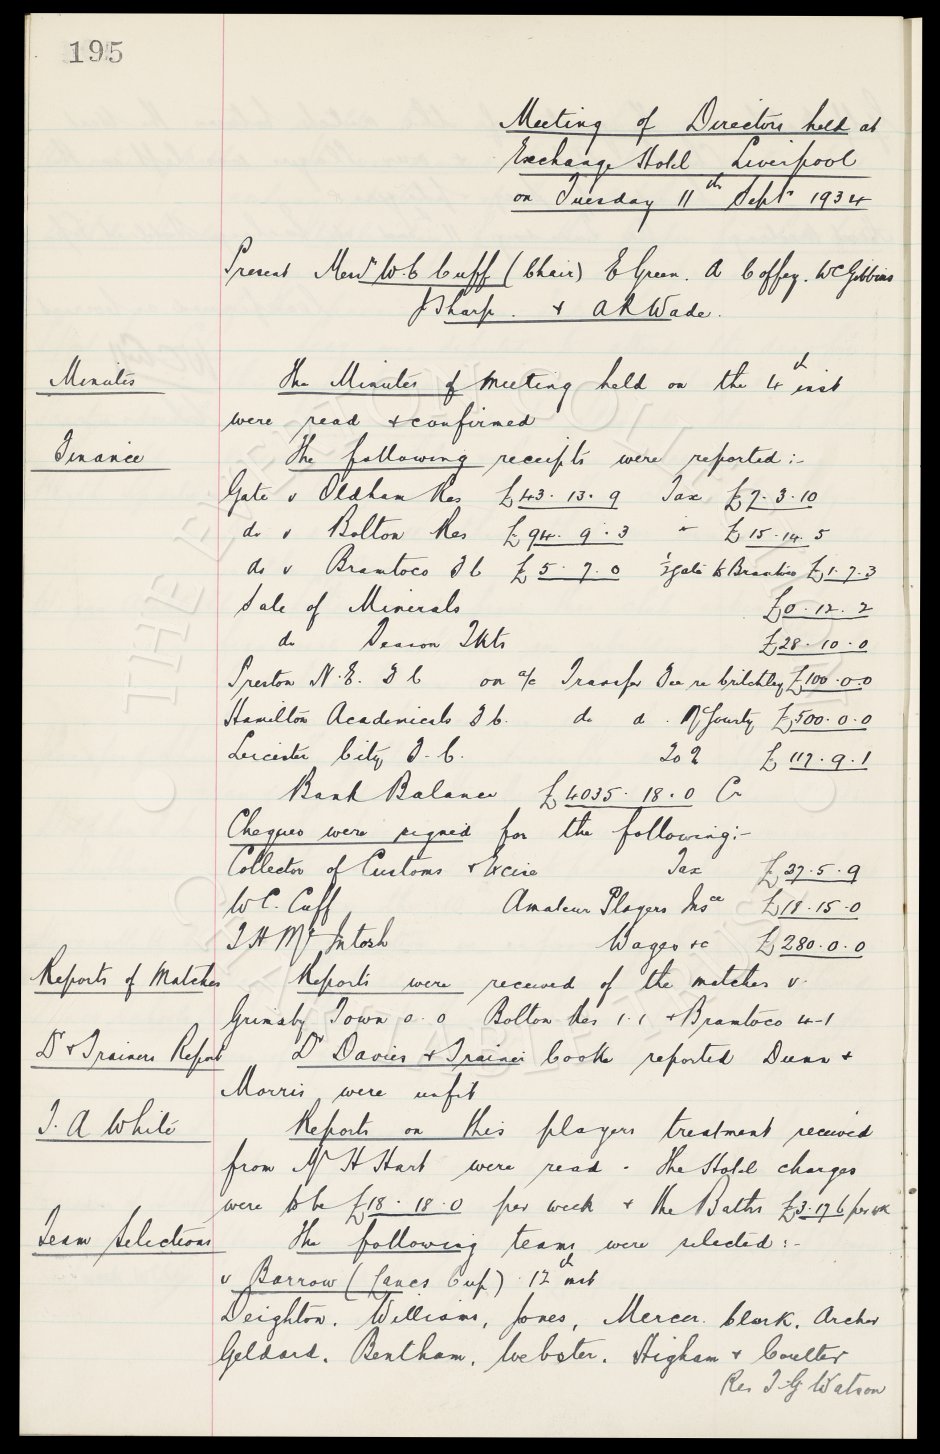 195
Meeting of Directors held at
Exchange Hotel Liverpool
on Tuesday 11th Septr 1934
Present Messrs W C Cuff (Chair) E Green. A Coffey. W C Gibbins
J Sharp. & A R Wade.
Minutes
The Minutes of meeting held on the 4th inst
were read & confirmed
Finance
The following receipts were reported:-
Gate v Oldham Res £43. 13. 9 Tax £7. 3. 10
do v Bolton Res £94. 9. 3 " £15. 14. 5
do v Bramtoco F C £5. 7. 0 ½ gate to Bramtoco £1. 7. 3
Sale of Minerals £0. 12. 2
do Season Tkts £28. 10. 0
Preston N. E. F C on a/c Transfer Fee re Critchley £100. 0. 0
Hamilton Academicals F C. do d. McGourty £500. 0. 0
Leicester City F. C. 20% £117. 9. 1
Bank Balance £4035. 18. 0 Cr
Cheques were signed for the following:-
Collector of Customs & Excise Tax £27. 5. 9
W C. Cuff Amateur Players Insce £18. 15. 0
T H McIntosh Wages &c £280. 0. 0
Reports of Matches
Reports were received of the matches v.
Grimsby Town 0. 0 Bolton Res 1. 1 & Bramtoco 4-1
Dr & Trainers Report
Dr Davies & Trainer Cooke reported Dunn &
Morris were unfit
T. A White
Reports on this players treatment received
from Mr H Hart were read. The Hotel charges
were to be £18. 18. 0 per week & the Baths £3. 17 6 per wk
Team Selections
The following teams were selected:-
v Barrow (Lancs Cup) 12th inst
Deighton. Williams, Jones, Mercer. Clark. Archer
Geldard. Bentham. Webster. Higham & Coulter
Res T G Watson